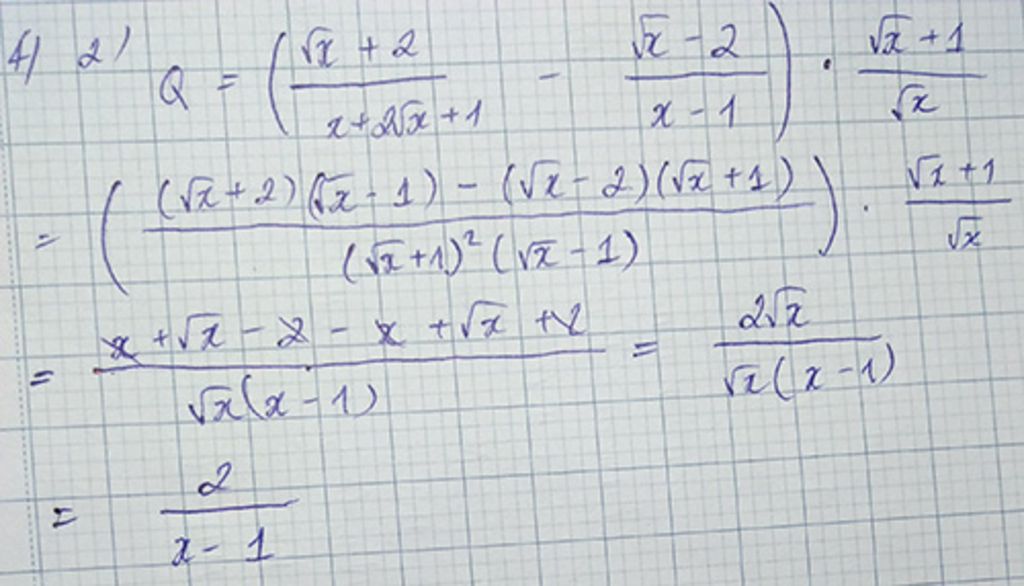 4) 2) Q = ( (√x + 2)/(x + 2√x + 1) - (√x - 2)/(x - 1) ) · (√x + 1)/√x
= ( ((√x + 2)(√x - 1) - (√x - 2)(√x + 1))/((√x + 1)²(√x - 1)) ) · (√x + 1)/√x
= (x + √x - 2 - x + √x + 2)/(√x(x - 1)) = 2√x/(√x(x - 1))
= 2/(x - 1)